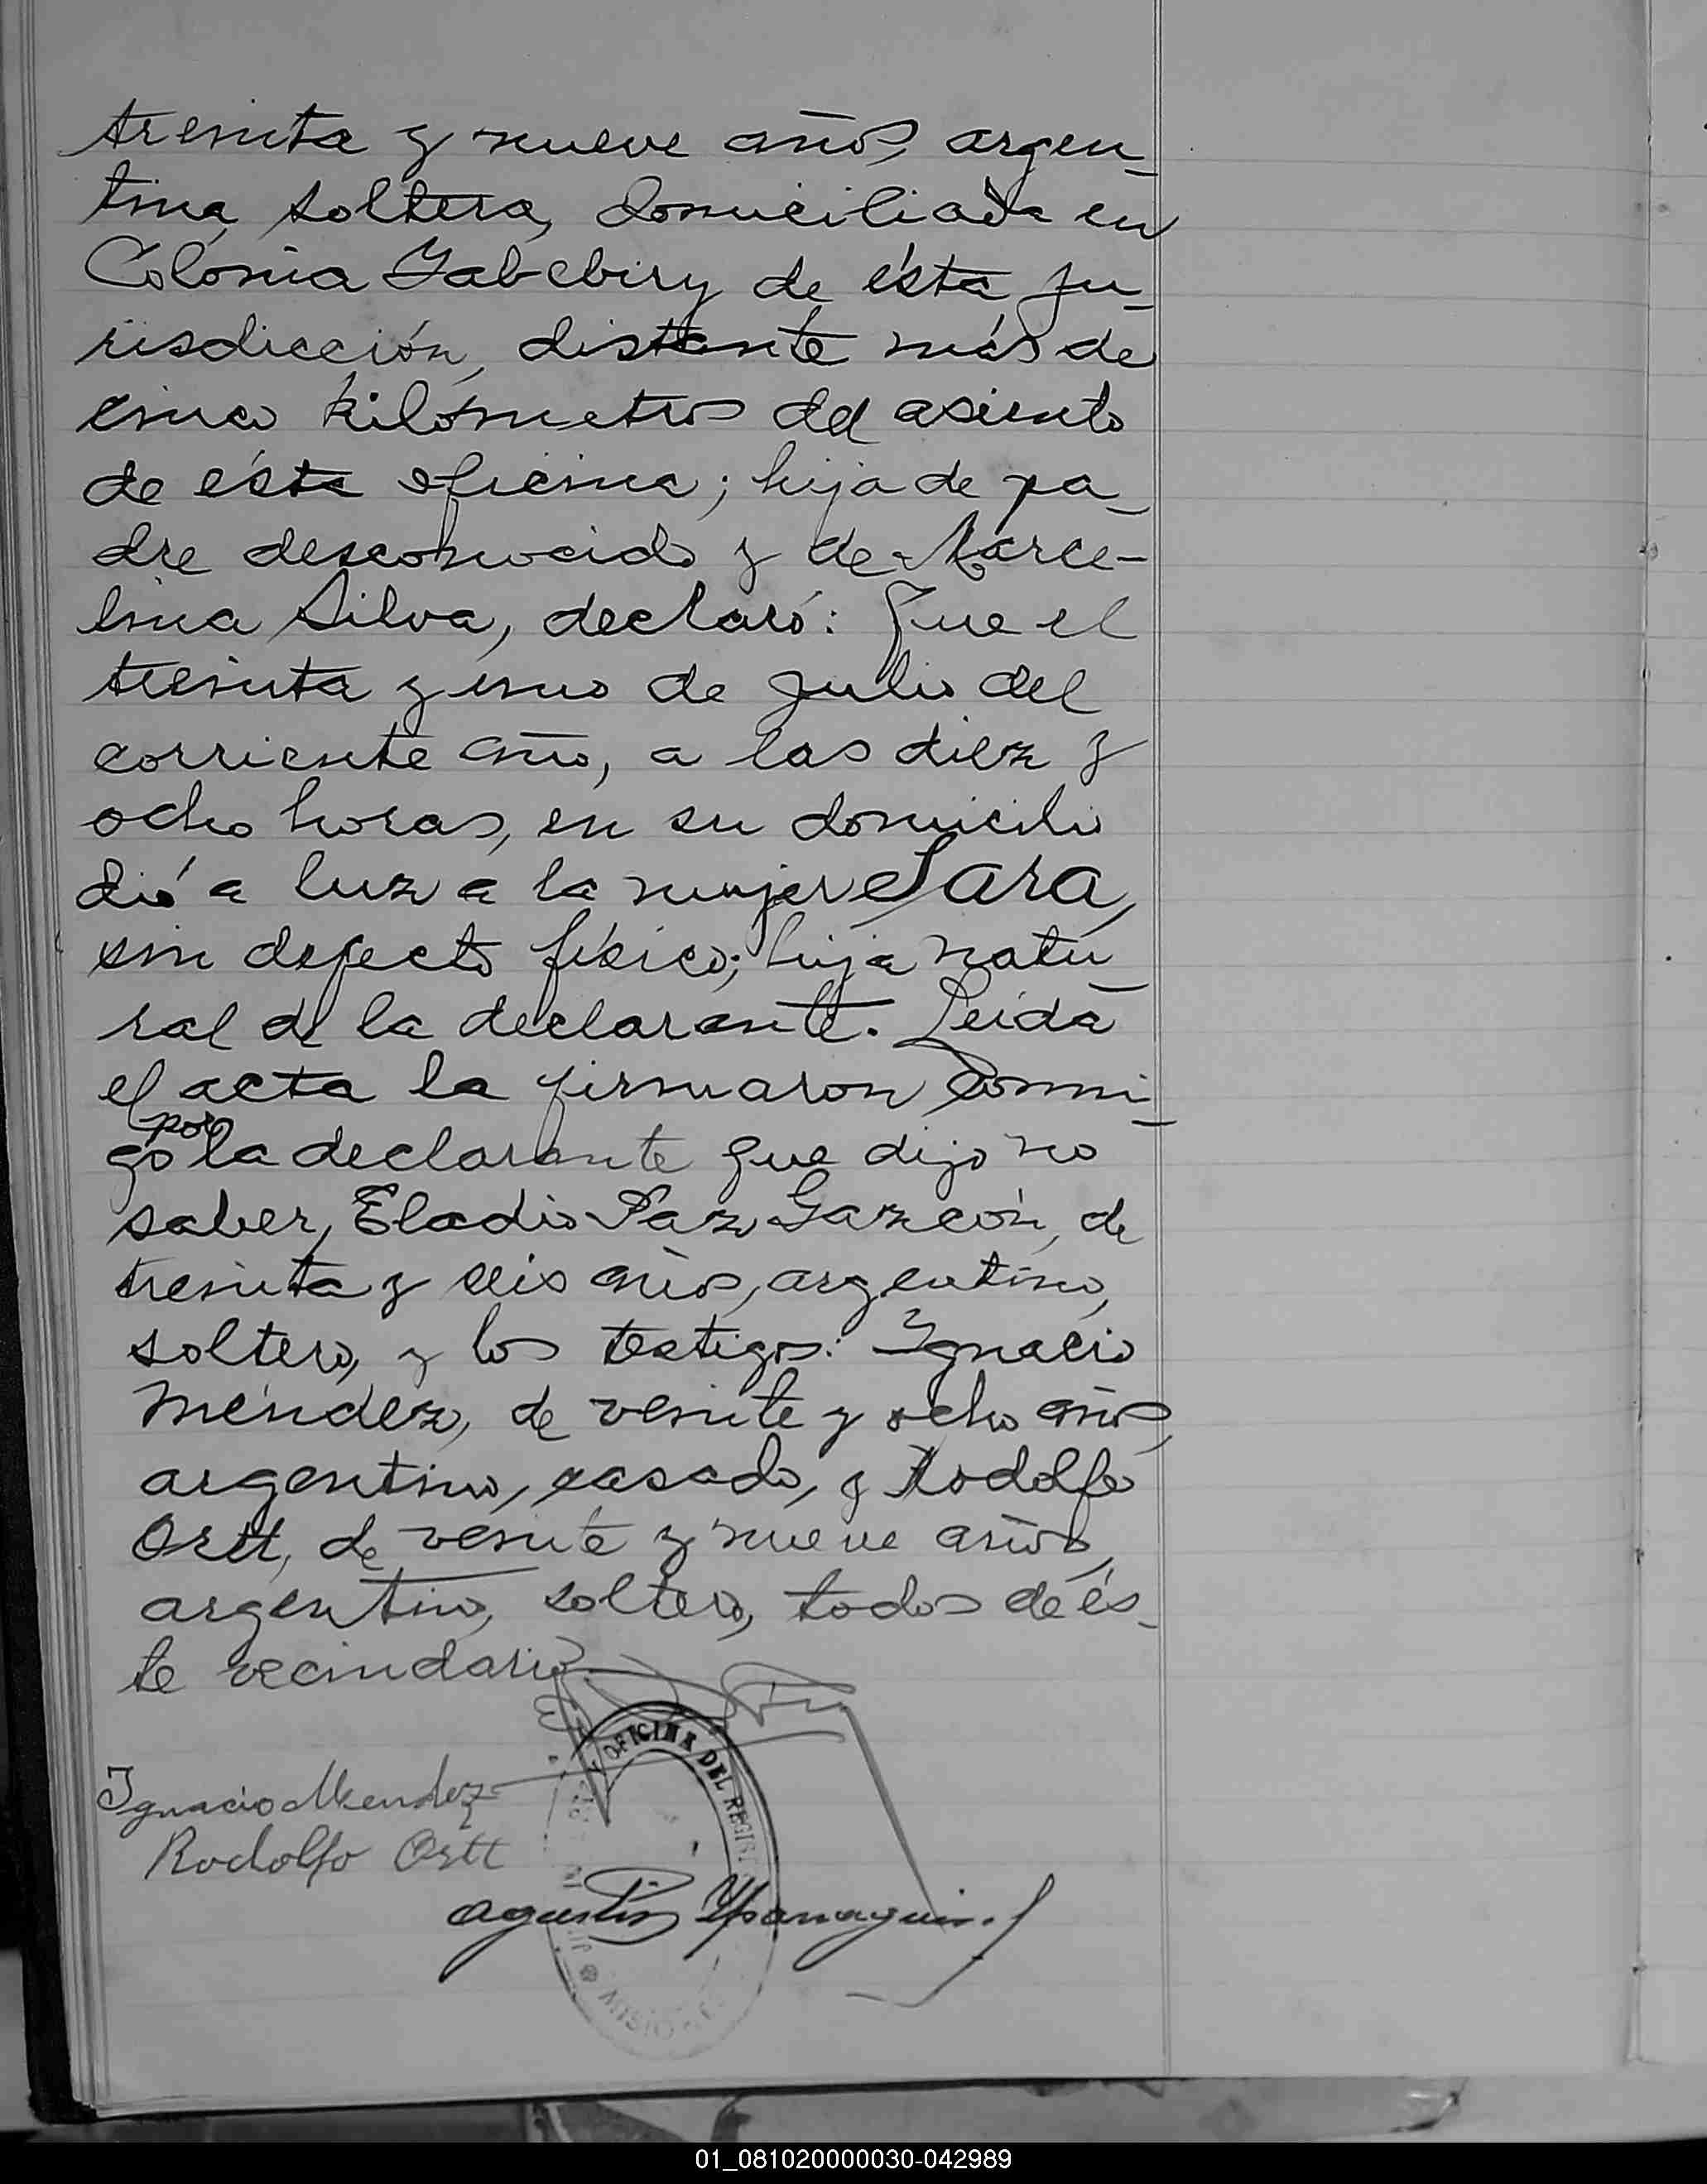 treinta y nueve años, argen_
tina, soltera, domiciliada en
Colonia Yabebiry de ésta ju_
risdicción, distante más de
cinco kilómetros del asiento
de ésta oficina; hija de pa_
dre desconocido y de Marce-
lina Silva, declaró: Que el
treinta y uno de julio del
corriente año, a las diez y
ocho horas, en su domicilio
dió a luz a la mujer Sara,
sin defecto físico; hija natu_
ral de la declarante. Leida
el acta la firmaron conmi_
go por la declarante que dijo no
saber, Eladio Paz Garzón, de
treinta y seis años, argentino,
soltero, y los testigos: Ignacio
Méndez, de veinte y ocho años,
argentino, casado, y Rodolfo
Ortt, de veinte y nueve años,
argentino, soltero, todos de és_
te vecindario.
OFICINA DEL REGIST
Ignacio Mendez
Rodolfo Ortt
Agustin
MISIONES
01_081020000030-042989